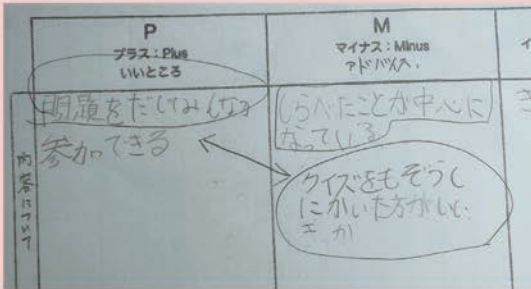 P
プラス：Plus
いいところ
M
マイナス：Minus
アドバイス
問題をだしてみんなが
参加できる
しらべたことが中心に
なっている
クイズをもぞうし
にかいた方がいい
内容について